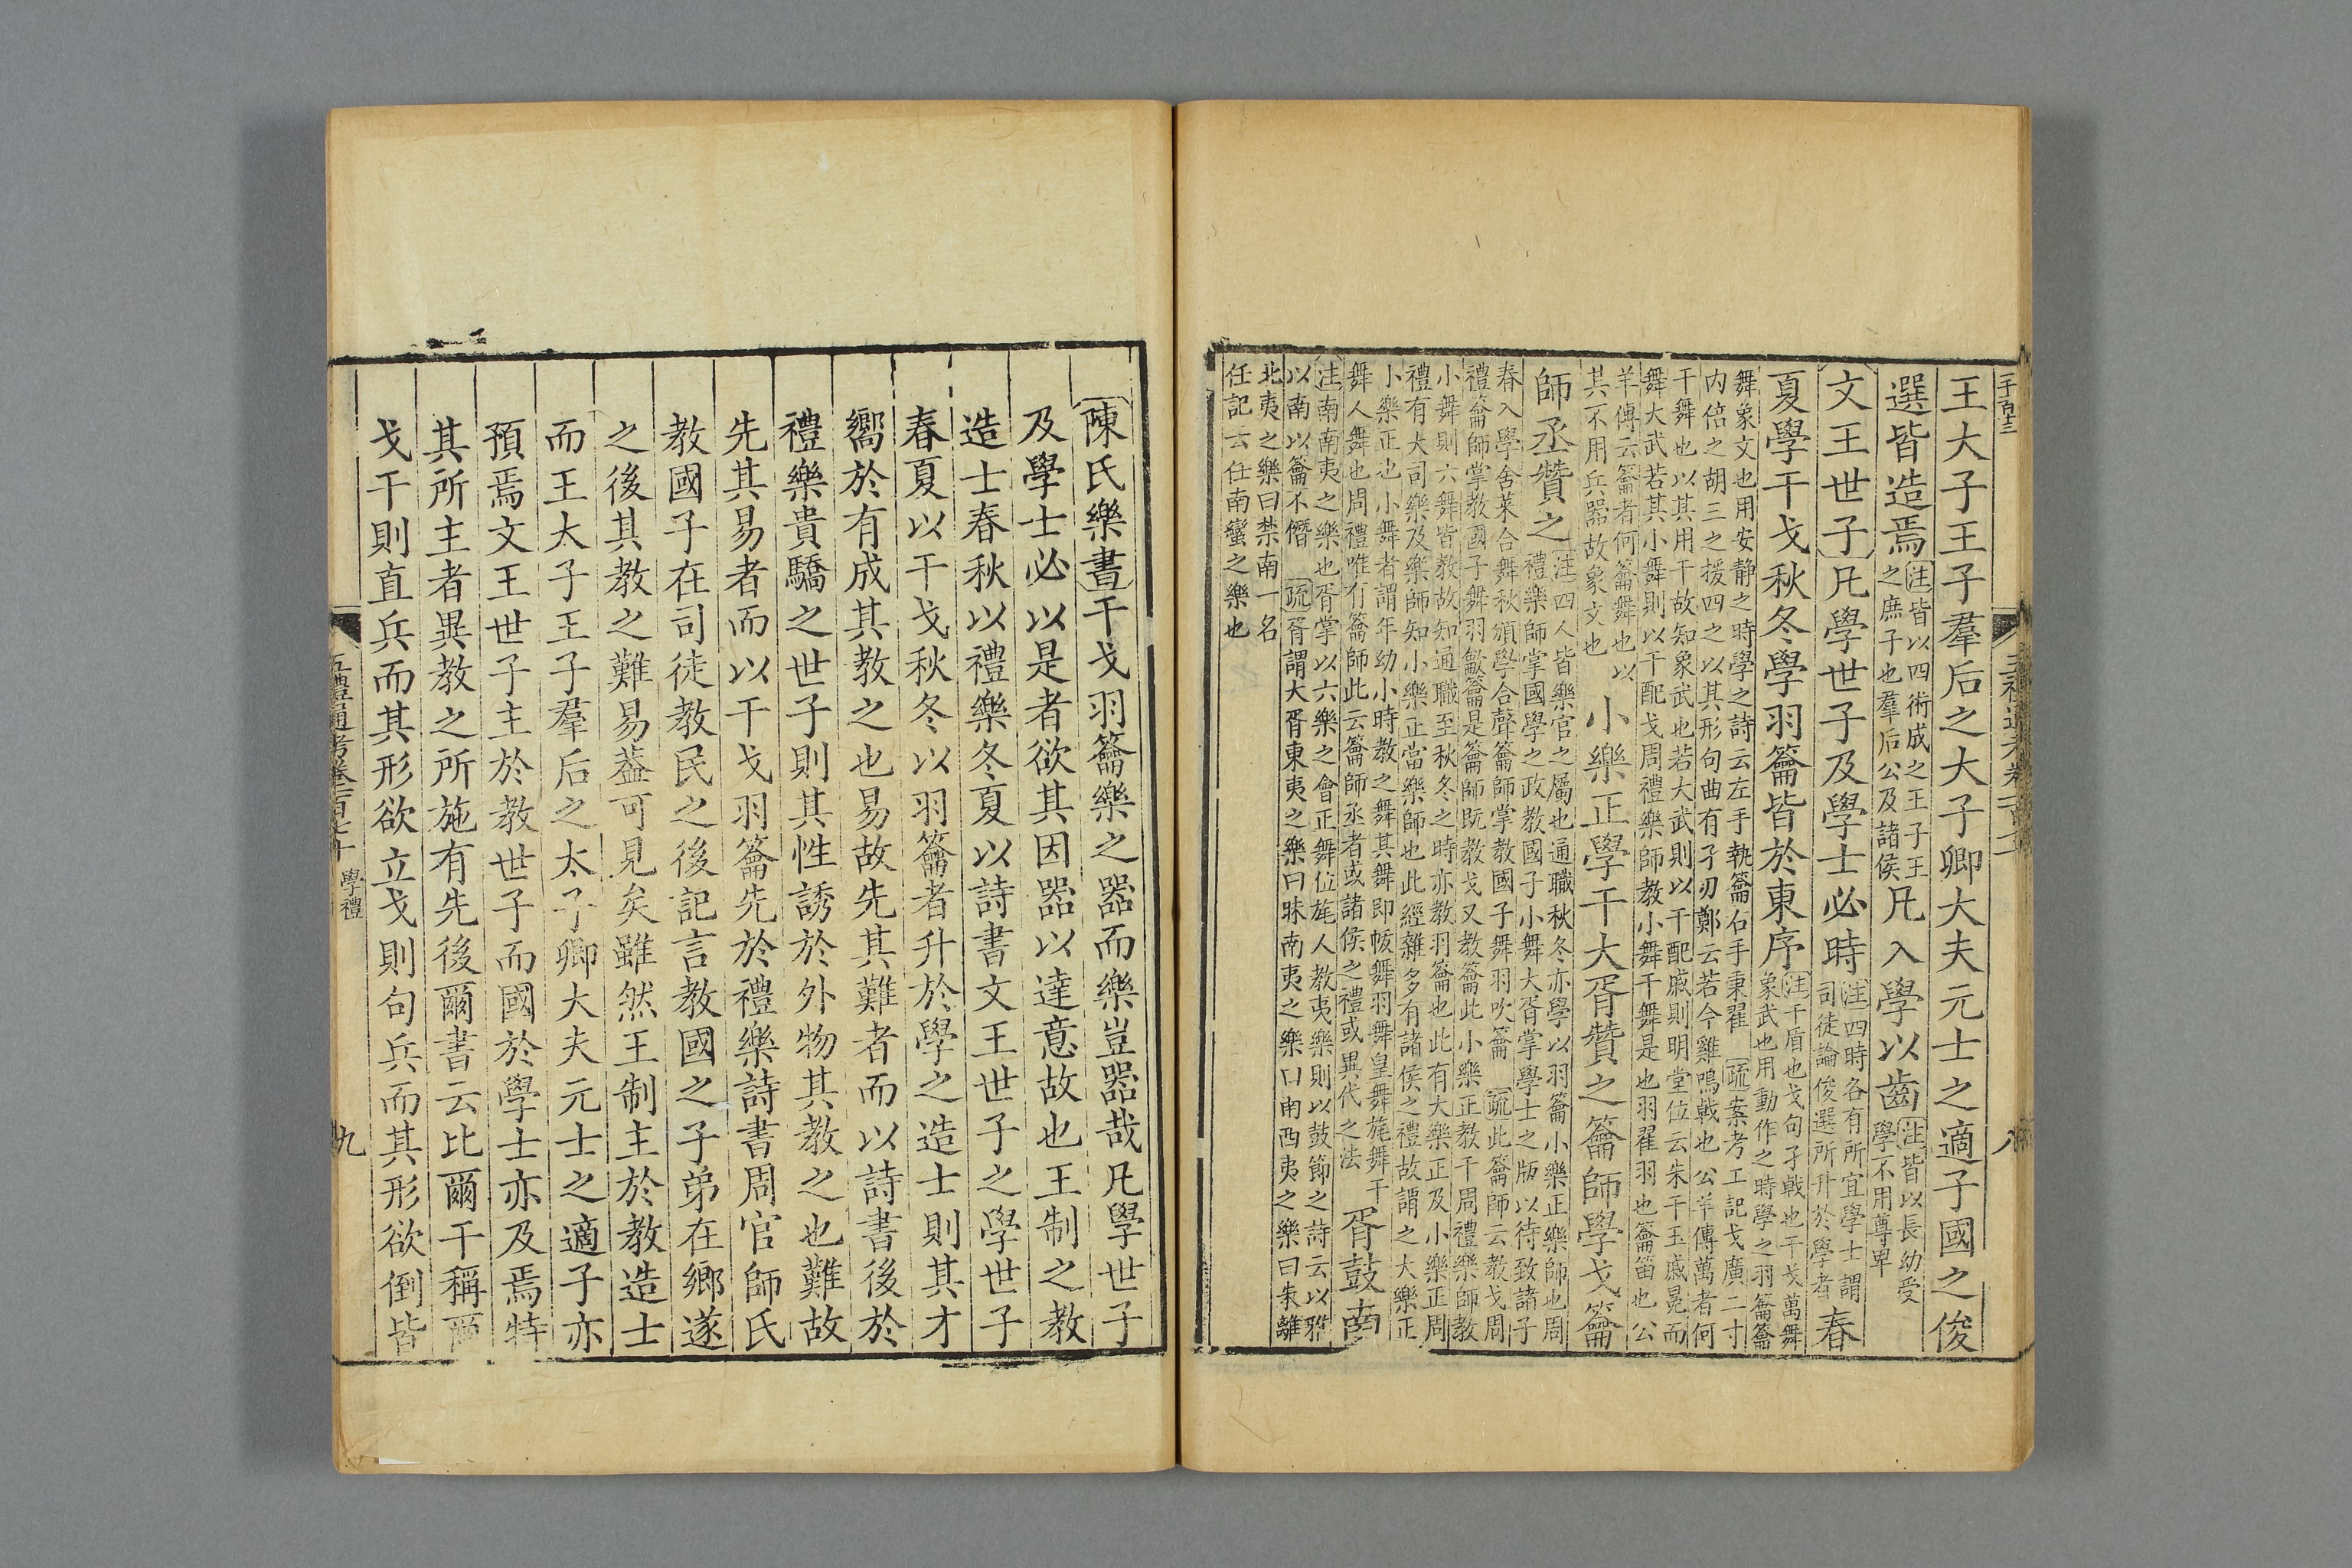 王大子王子羣后之大子卿大夫元士之適子國之俊
選皆造焉
注皆以四術成之王子王
之庶子也羣后公及諸侯
凡入學以齒
注皆以長幼受
學不用尊卑
文王世子凡學世子及學士必時
注四時各有所宜學士謂
司徒論俊選所升於學者
春
夏學干戈秋冬學羽籥皆於東序
注干盾也戈句孑戟也干戈萬舞
象武也用動作之時學之羽籥籥
舞象文也用安静之時學之詩云左手執籥右手秉翟 疏案考工記戈廣二寸
内倍之胡三之援四之以其形句曲有孑刃鄭云若今雞鳴戟也公羊傳萬者何
干舞也以其用干故知象武也若大武則以干配戚則明堂位云朱干玉戚冕而
舞大武若其小舞則以干配戈周禮樂師教小舞干舞是也羽翟羽也籥笛也公
羊傳云籥者何籥舞也以
其不用兵器故象文也
小樂正學干大胥贊之籥師學戈籥
師丞贊之
注四人皆樂官之屬也通職秋冬亦學以羽籥小樂正樂師也周
禮樂師掌國學之政教國子小舞大胥掌學士之版以待致諸子
春入學舍菜合舞秋頒學合聲籥師掌教國子舞羽吹籥 疏此籥師云教戈周
禮籥師掌教國子舞羽龡籥是籥師既教戈又教籥此小樂正教干周禮樂師教
小舞則六舞皆教故知通職至秋冬之時亦教羽籥也此有大樂正及小樂正周
禮有大司樂及樂師知小樂正當樂師也此經雜多有諸侯之禮故謂之大樂正
小樂正也小舞者謂年幼小時教之舞其舞即帗舞羽舞皇舞旄舞干
舞人舞也周禮唯有籥師此云籥師丞者或諸侯之禮或異代之法
胥鼓南
注南南夷之樂也胥掌以六樂之會正舞位旄人教夷樂則以鼓節之詩云以雅
以南以籥不僭 疏胥謂大胥東夷之樂曰昧南夷之樂曰南西夷之樂曰朱離
北夷之樂曰禁南一名
任記云任南蠻之樂也
陳氏樂書干戈羽籥樂之器而樂豈器哉凡學世子
及學士必以是者欲其因器以達意故也王制之教
造士春秋以禮樂冬夏以詩書文王世子之學世子
春夏以干戈秋冬以羽籥者升於學之造士則其才
嚮於有成其教之也易故先其難者而以詩書後於
禮樂貴驕之世子則其性誘於外物其教之也難故
先其易者而以干戈羽籥先於禮樂詩書周官師氏
教國子在司徒教民之後記言教國之子弟在鄉遂
之後其教之難易葢可見矣雖然王制主於教造士
而王太子王子羣后之太子卿大夫元士之適子亦
預焉文王世子主於教世子而國於學士亦及焉特
其所主者異教之所施有先後爾書云比爾干稱爾
戈干則直兵而其形欲立戈則句兵而其形欲倒皆
五禮通考卷一百七十 學禮
九